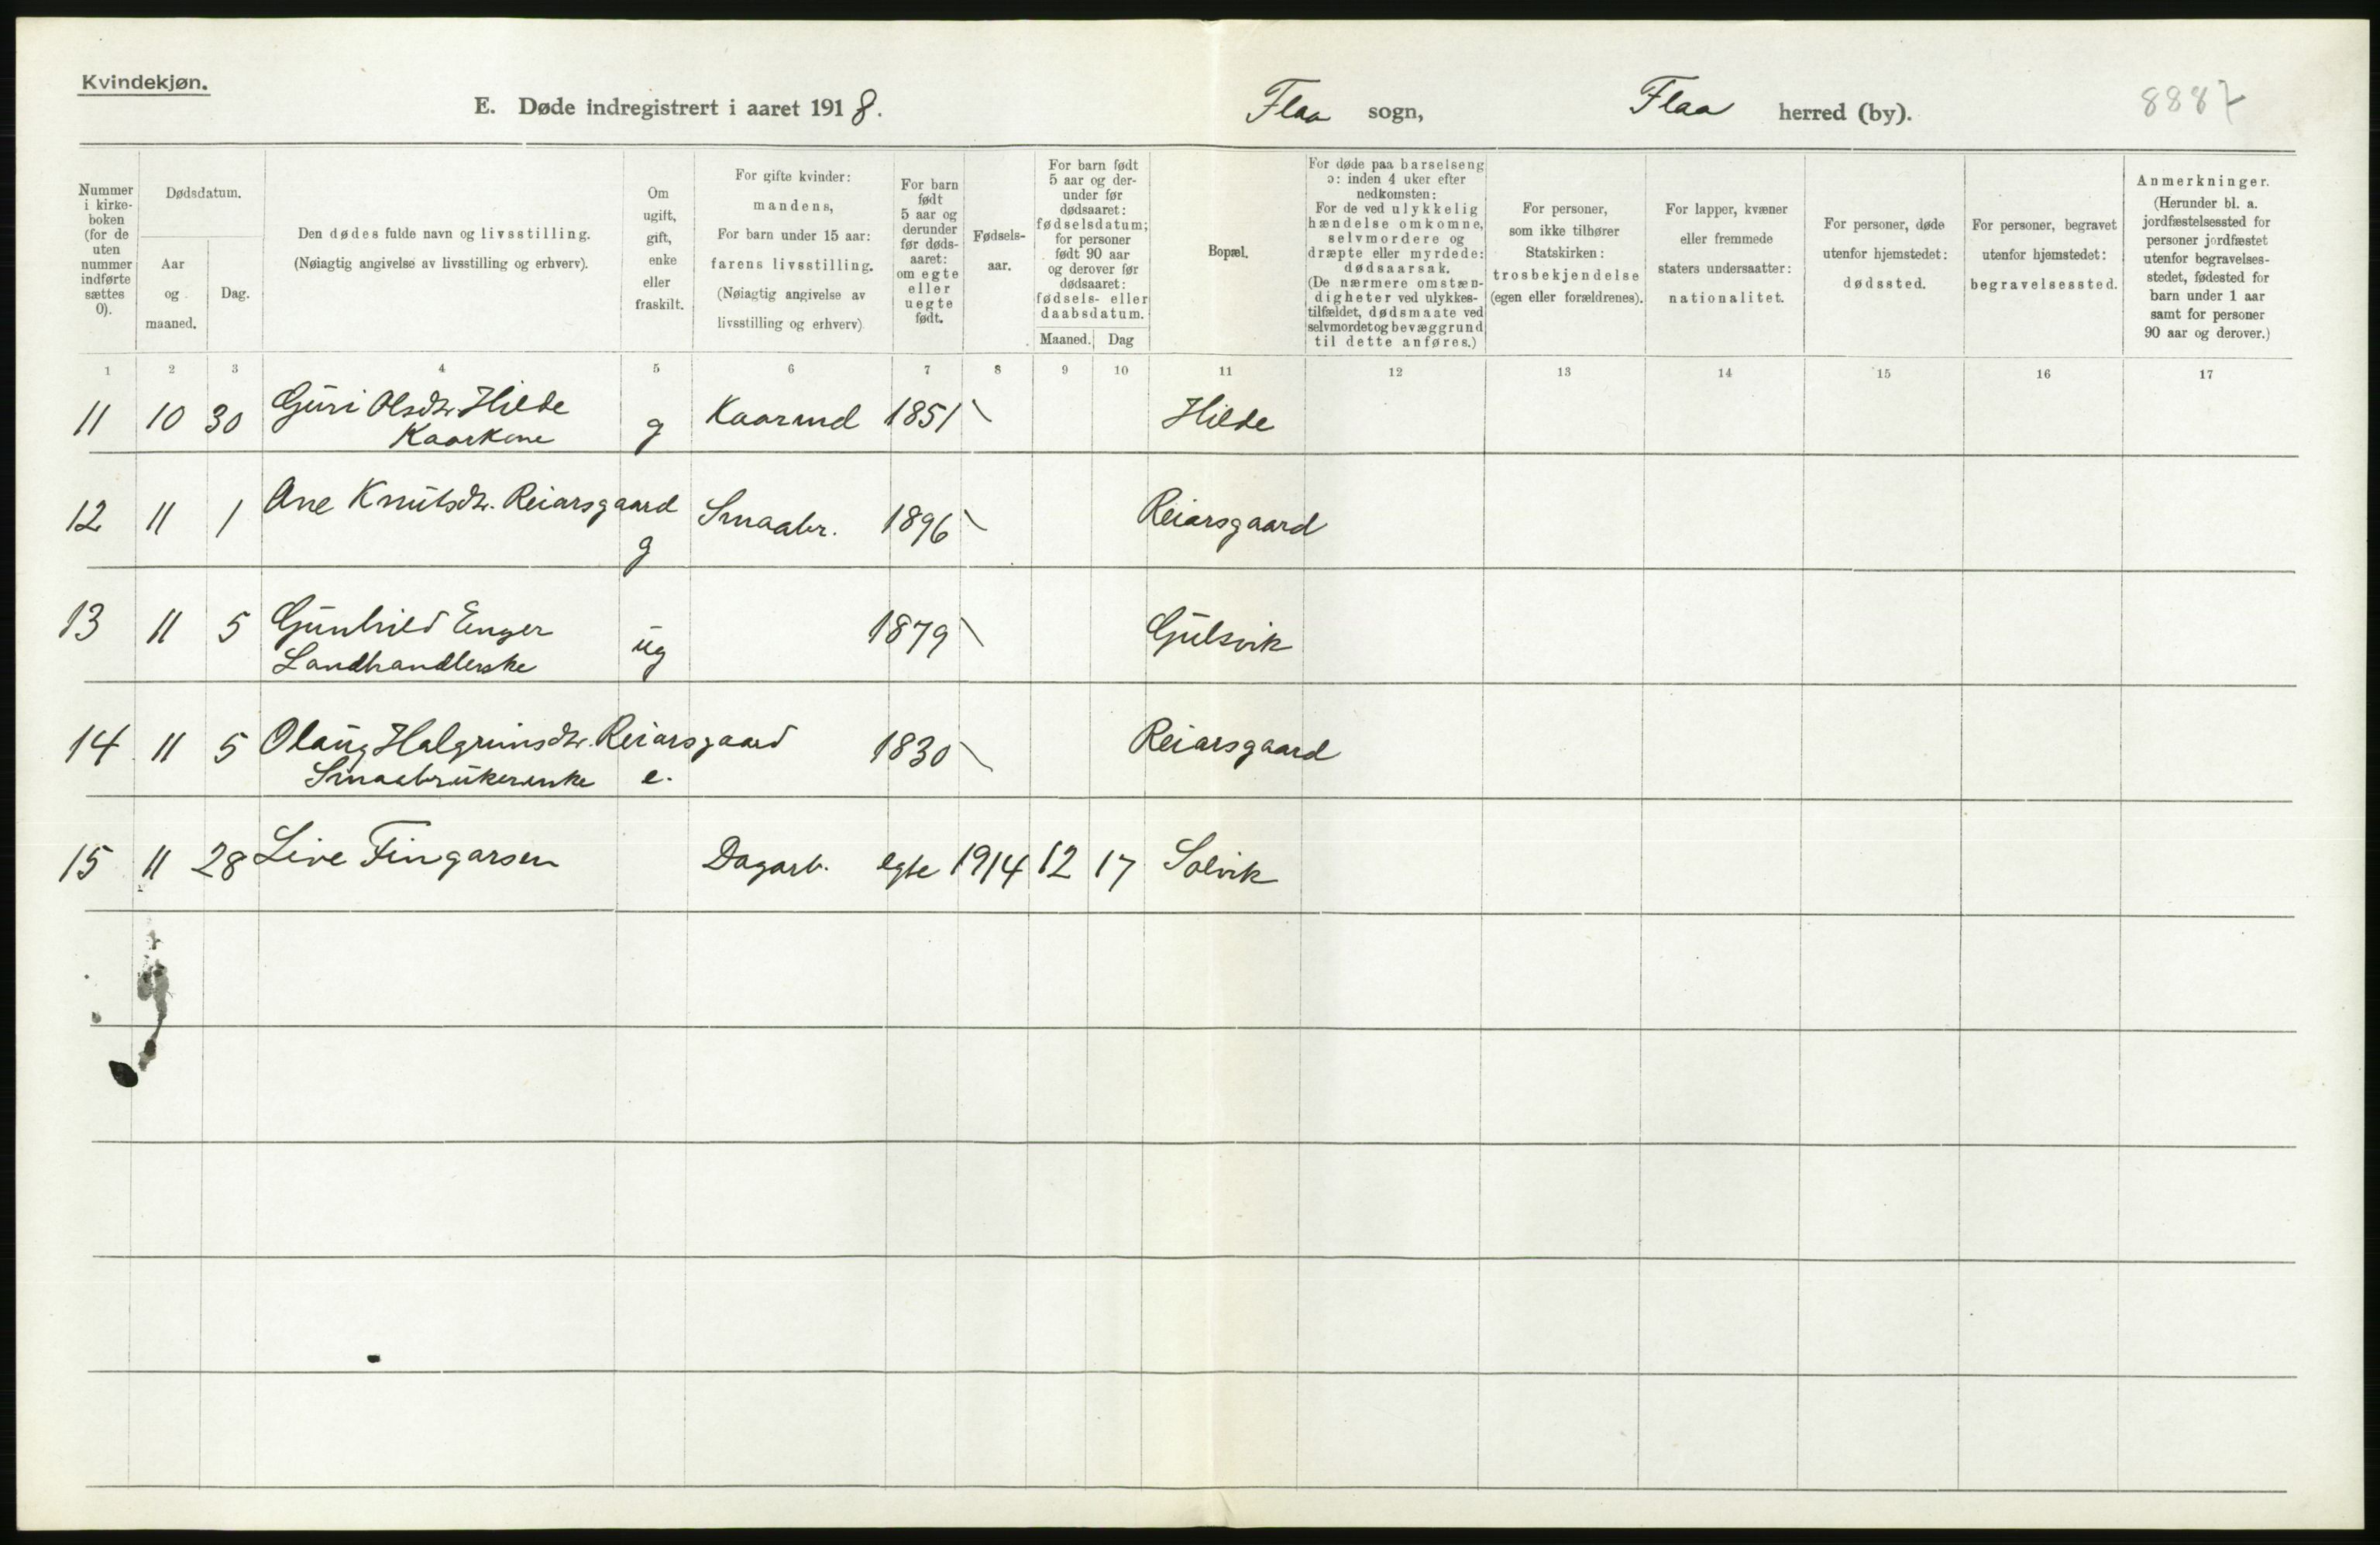 Kvindekjøn.
E. Døde indregistrert i aaret 1918.
Flaa sogn,
Flaa herred (by).
8887
Nummer
i kirke-
boken
(for de
uten
nummer
indførte
sættes
0).
Dødsdatum.
Aar
og
maaned.
Dag.
Den dødes fulde navn og livsstilling.
(Nøiagtig angivelse av livsstilling og erhverv).
Om
ugift,
gift,
enke
eller
fraskilt.
For gifte kvinder:
mandens,
For barn under 15 aar:
farens livsstilling.
(Nøiagtig angivelse av
livsstilling og erhverv)
For barn
født
5 aar og
derunder
før døds-
aaret:
om egte
eller
uegte
født.
Fødsels-
aar.
For barn født
5 aar og der-
under før
dødsaaret:
fødselsdatum;
for personer
født 90 aar
og derover før
dødsaaret:
fødsels- eller
daabsdatum.
Maaned. Dag
Bopæl.
For døde paa barselseng
ɔ: inden 4 uker efter
nedkomsten:
For de ved ulykkelig
hændelse omkomne,
selvmordere og
dræpte eller myrdede:
dødsaarsak.
(De nærmere omstæn-
digheter ved ulykkes-
tilfældet, dødsmaate ved
selvmordet og bevæggrund
til dette anføres.)
For personer,
som ikke tilhører
Statskirken:
trosbekjendelse
(egen eller forældrenes).
For lapper, kvæner
eller fremmede
staters undersaatter:
nationalitet.
For personer, døde
utenfor hjemstedet:
dødssted.
For personer, begravet
utenfor hjemstedet:
begravelsessted.
Anmerkninger.
(Herunder bl. a.
jordfæstelsessted for
personer jordfæstet
utenfor begravelses-
stedet, fødested for
barn under 1 aar
samt for personer
90 aar og derover.)
1 2 3 4 5 6 7 8 9 10 11 12 13 14 15 16 17
11 10 30 Guri Olsdtr. Hilde g Kaarmd 1851 Hilde
Kaarkone
12 11 1 Ane Knutsdtr. Reiarsgaard g Smaabr. 1896 Reiarsgaard
13 11 5 Gunhild Enger ug 1879 Gulsvik
Landhandlerske
14 11 5 Olaug Halgrimsdtr. Reiarsgaard 1830 Reiarsgaard
Smaabrukerenke e.
15 11 28 Live Fingarsen Dagarb. egte 1914 12 17 Solvik